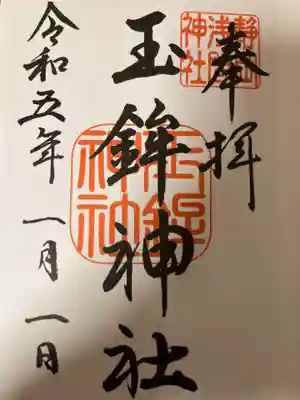 奉拝
静岡
浅間
神社
玉鉾神社
玉鉾
神社
令和五年 一月 一日